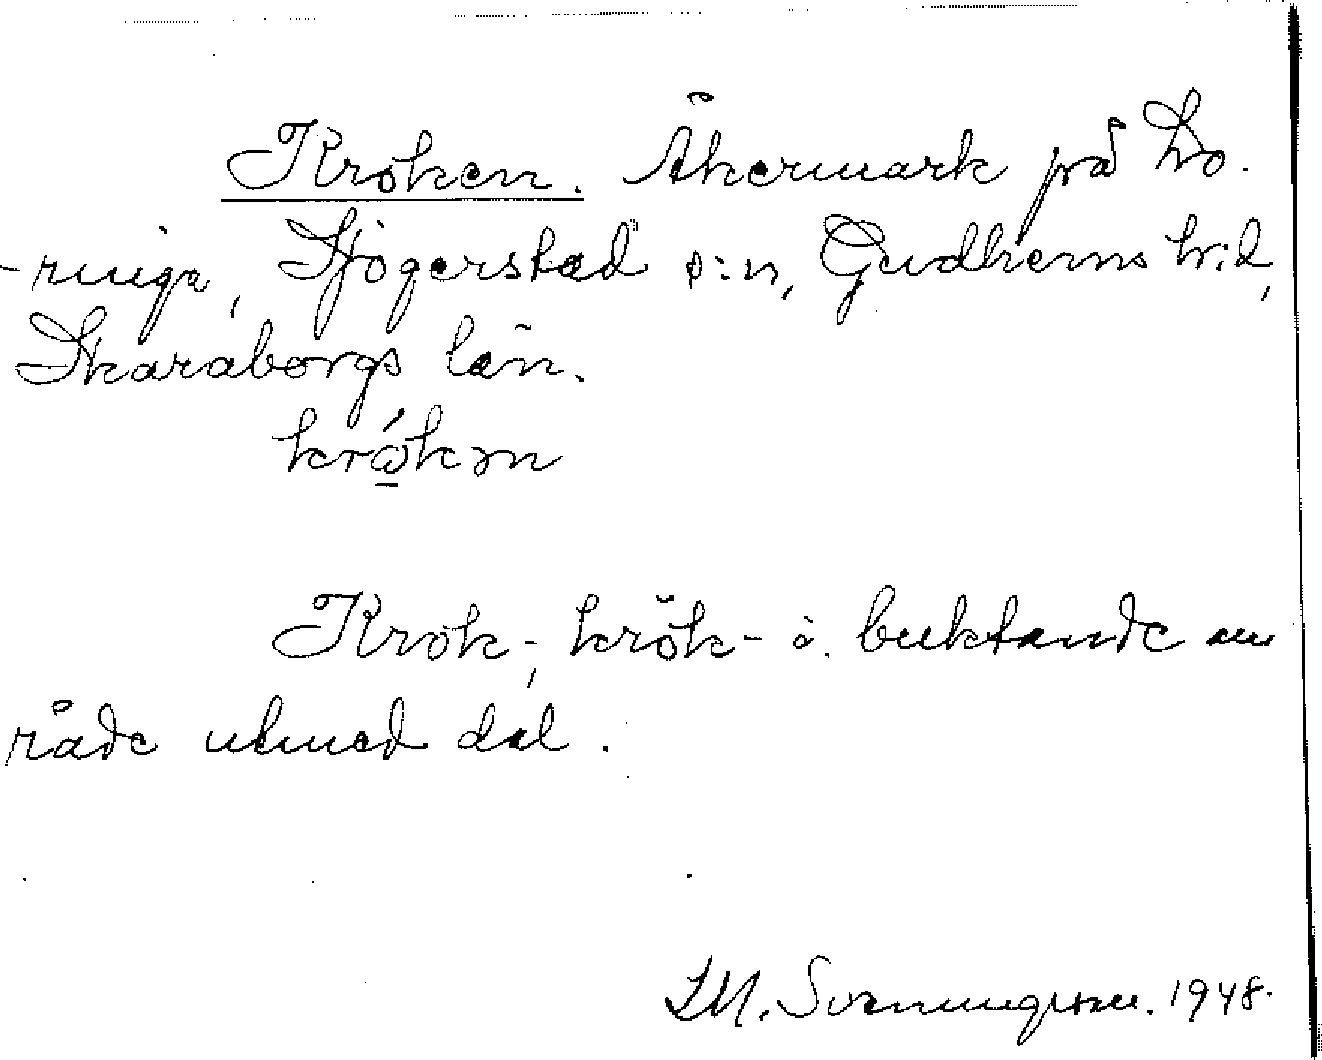 Kroken. Åkermark på Lo-
-ringa, Sjögerstad s:n, Gudhems h:d,
Skaraborgs län.
krókən
Krok-, krök- i. buktande om
råde utmed dal.
M. Svenningsson. 1948.